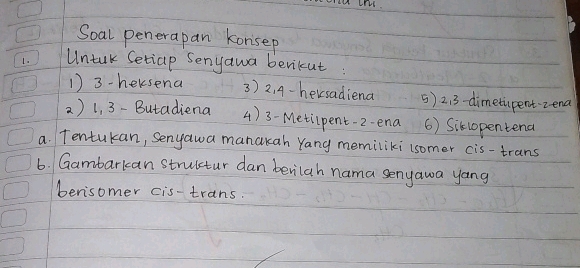 Soal penerapan konsep
1. Untuk Setiap Senyawa berikut :
1) 3-heksena 3) 2,4-heksadiena 5) 2,3-dimetilpent-2-ena
2) 1,3-Butadiena 4) 3-Metilpent-2-ena 6) Siklopentena
a. Tentukan, senyawa manakah yang memiliki isomer cis-trans
b. Gambarkan struktur dan berilah nama senyawa yang
berisomer cis-trans.